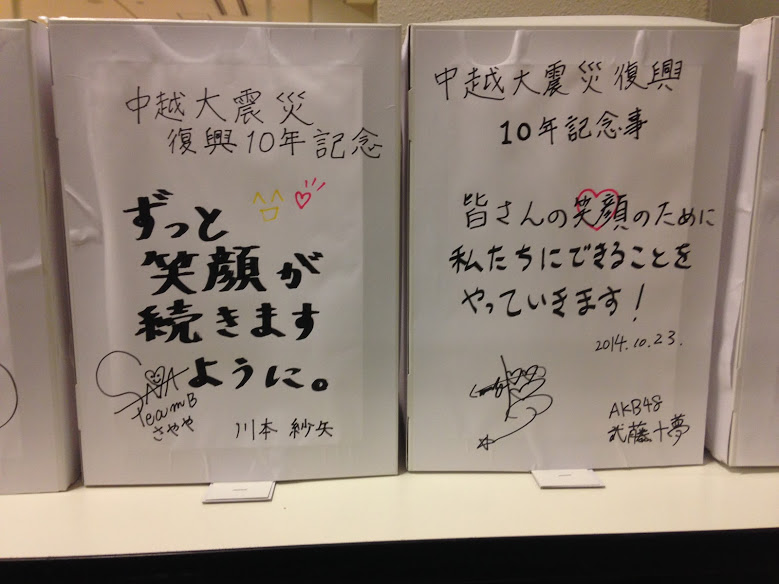 中越大震災
復興10年記念
ずっと
笑顔が
続きます
ように。
TeamB
さやや
川本 紗矢
中越大震災復興
10年記念事
皆さんの笑顔のために
私たちにできることを
やっていきます！
2014.10.23.
AKB48
武藤十夢